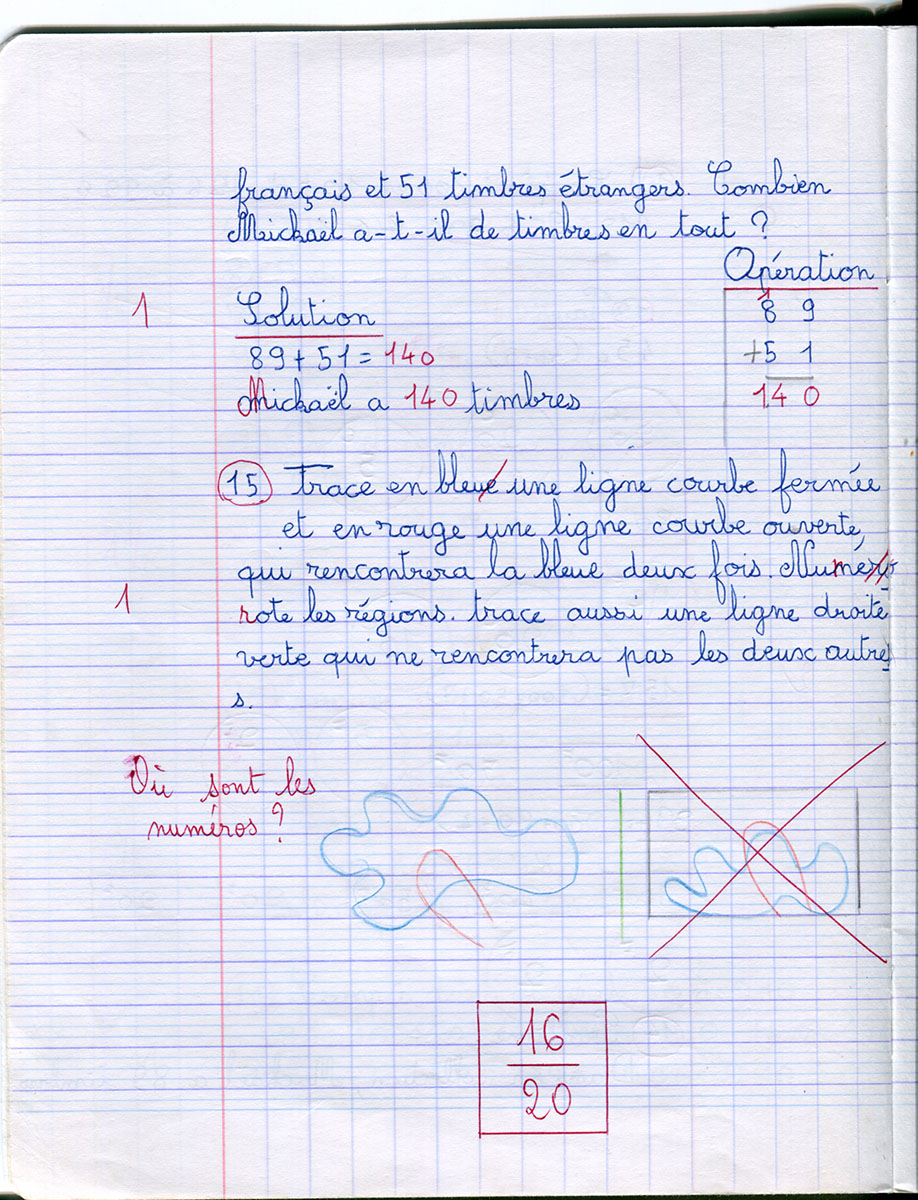 français et 51 timbres étrangers. Combien
Mickaël a-t-il de timbres en tout ?
Opération
1
8 9
+5 1
14 0
1
Solution
89+51=140
Mickaël a 140 timbres
15 Trace en bleue une ligne courbe fermée
et en rouge une ligne courbe ouverte,
qui rencontrera la bleue deux fois. Numé
1
rote les régions. trace aussi une ligne droite
verte qui ne rencontrera pas les deux autre
s.
Où sont les
numéros ?
16
20